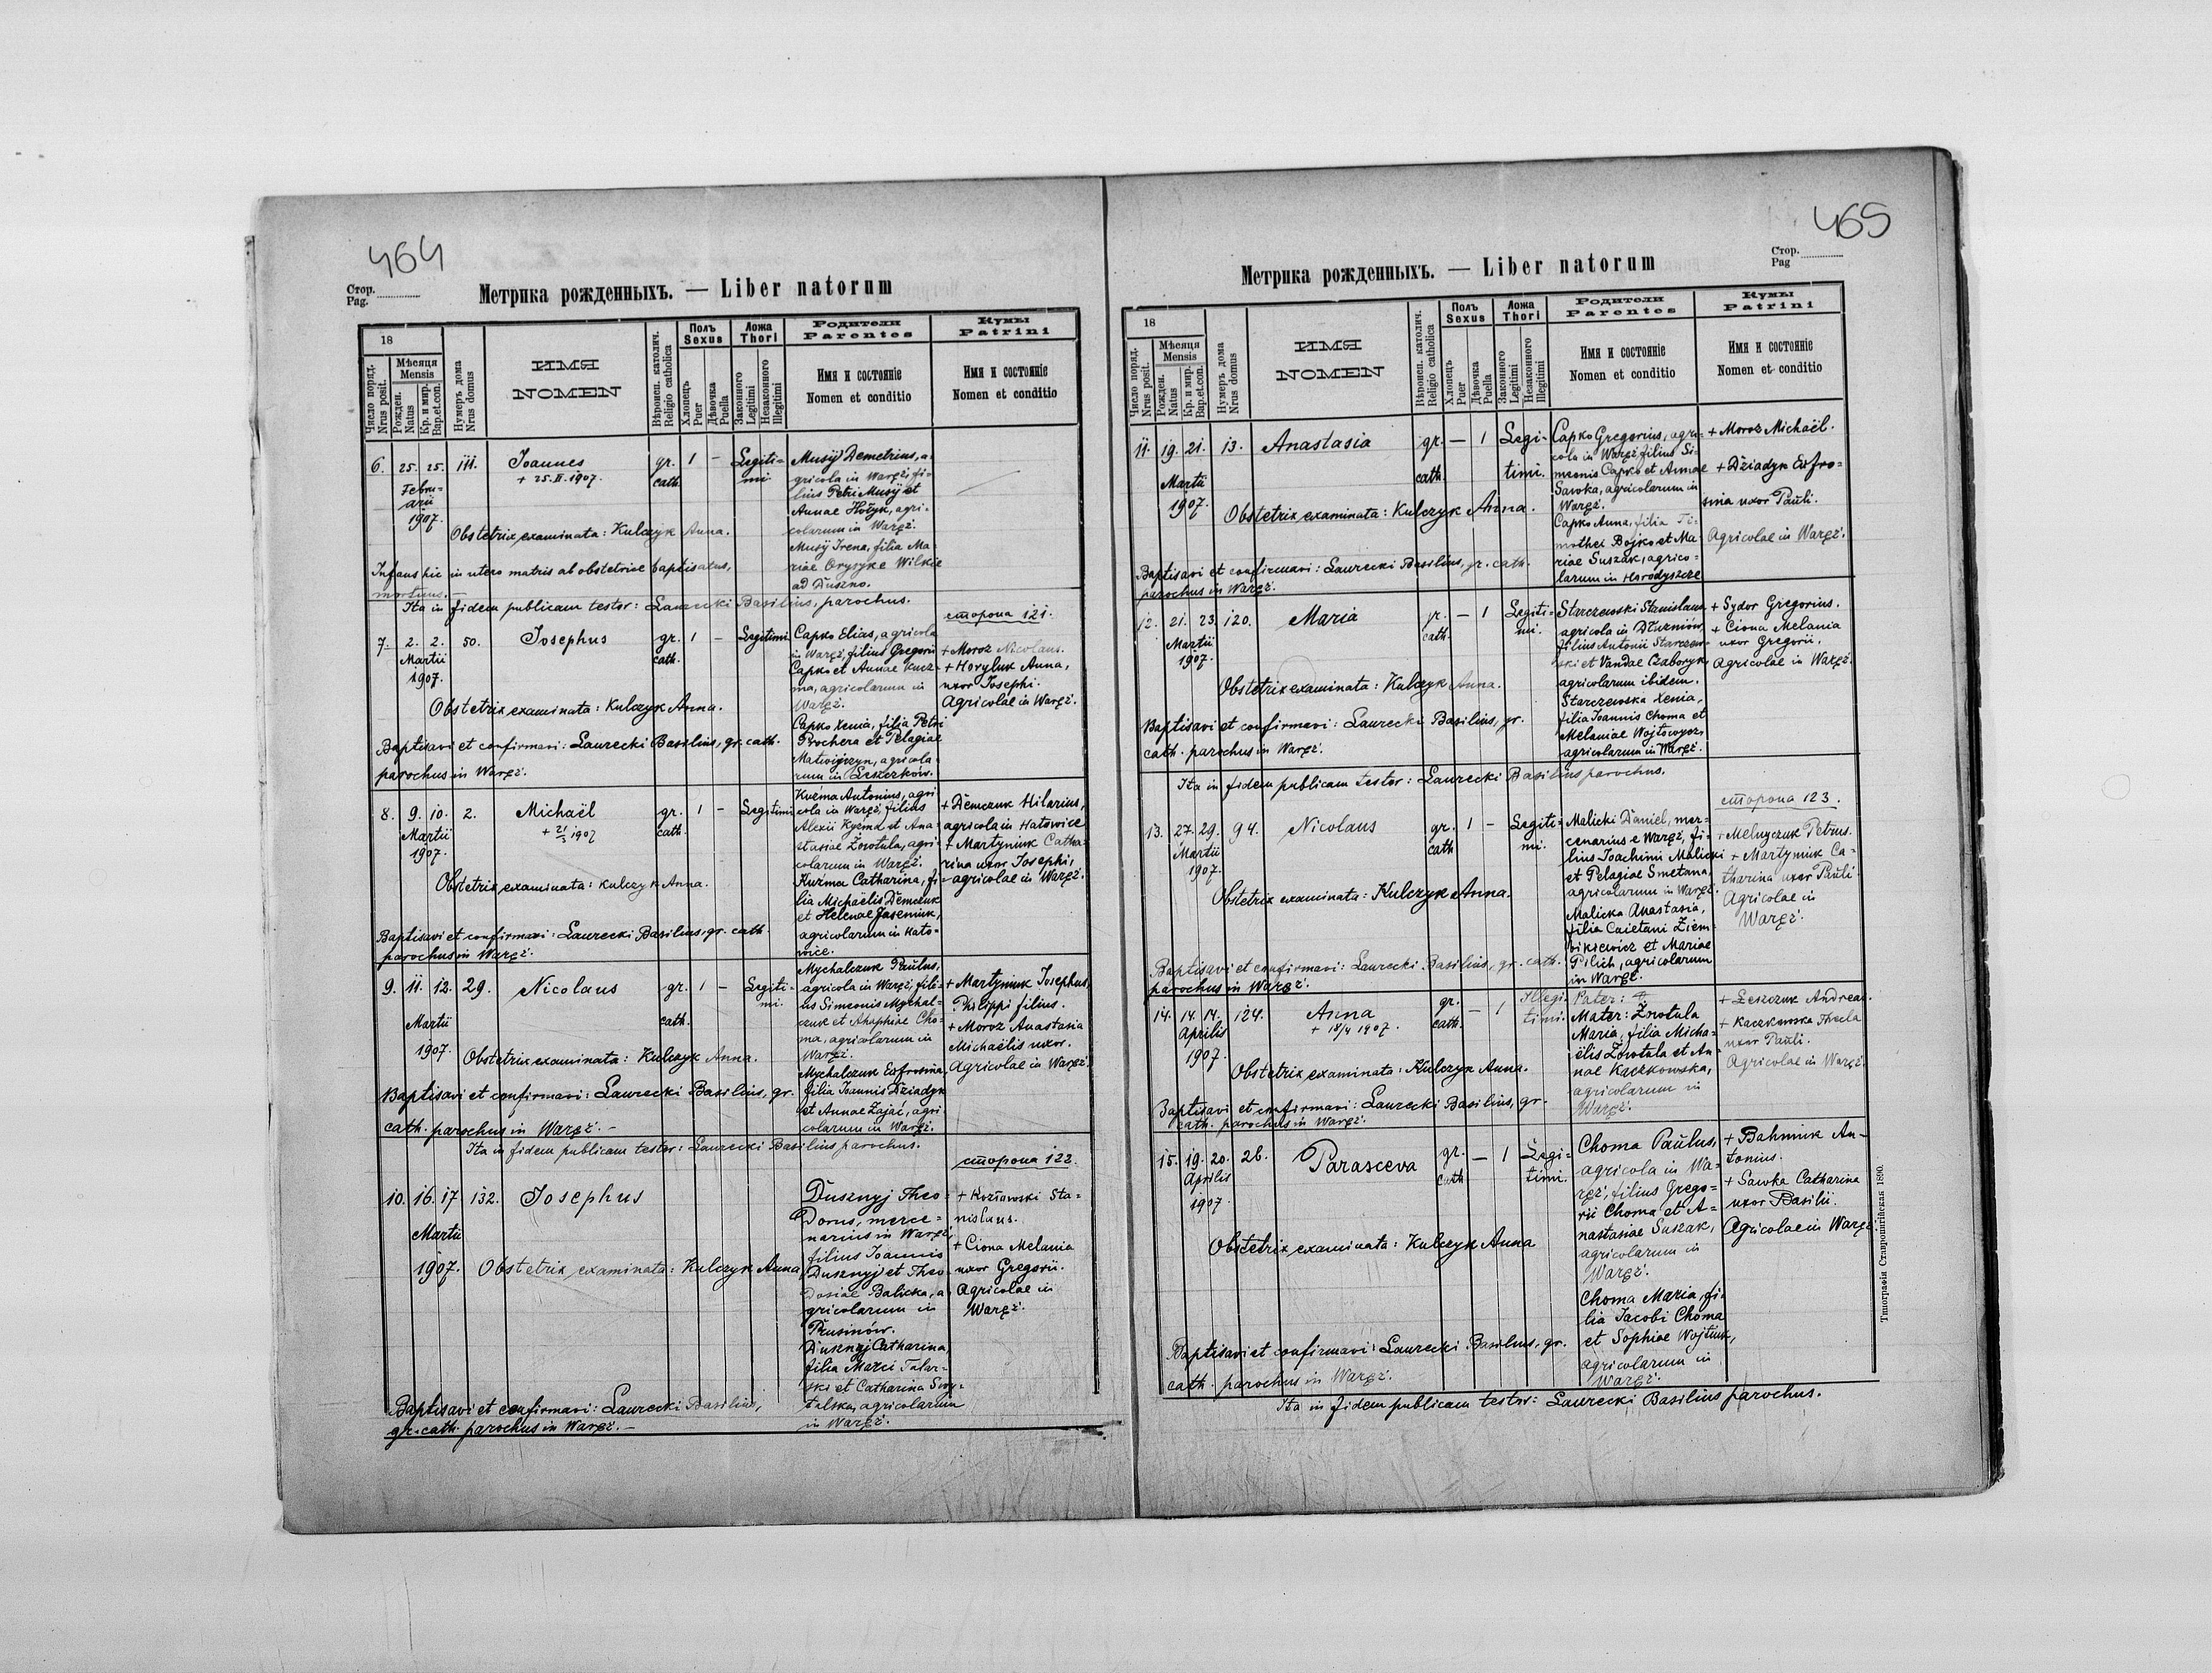 464
Стор.
Pag.
Метрика рожденныхъ. — Liber natorum
18
Число поряд.
Nrus posit.
Мѣсяця
Mensis
Рожден.
Natus
Кр. и мир.
Bap.et.con.
Нумеръ дома
Nrus domus
ИМЯ
NOMEN
Вѣроисп. католич.
Religio catholica
Полъ
Sexus
Хлопець
Puer
Дѣвочка
Puella
Ложа
Thori
Законного
Legitimi
Незаконного
Illegitimi
Родители
Parentes
Имя и состоянiе
Nomen et conditio
Кумы
Patrini
Имя и состоянiе
Nomen et conditio
6. 25. 25. 111. Joannes gr. 1 – Legiti-
+ 25.II.1907. cath. mi
Febru-
arii
1907.
Musij Demetrius, a-
gricola in Waręż, fi-
lius Petri Musij et
Annae Hołyk, agri-
colarum in Waręż.
Musij Irena, filia Ma-
riae Orysyke Wilskie
ad Duszno.
Obstetrix examinata: Kulczyk Anna.
Infans hic in utero matris ab obstetrice baptisatus,
mortuus. —
Ita in fidem publicam testor: Laurecki Basilius, parochus.
сторона 121.
7. 2. 2. 50. Josephus gr. 1 – Legitimi
cath.
Martii
1907.
Capko Elias, agricola
in Waręż, filius Gregorii
Capko et Annae Kucz-
ma, agricolarum in
Waręż.
Capko Xenia, filia Petri
Prochera et Pelagiae
Matwijczyn, agricola-
rum in Leszczków.
+ Moroz Nicolaus.
+ Horyluk Anna,
uxor Josephi.
Agricolae in Waręż.
Obstetrix examinata: Kulczyk Anna.
Baptisavi et confirmavi: Laurecki Basilius, gr. cath.
parochus in Waręż.
8. 9. 10. 2. Michaël gr. 1 – Legitimi
+ 21/3 1907 cath.
Martii
1907.
Kuźma Antonius, agri-
cola in Waręż, filius
Alexii Kuźma et Ana-
stasiae Żowtula, agri-
colarum in Waręż.
Kuźma Catharina, fi-
lia Michaëlis Demczuk
et Helenae Jaseniuk,
agricolarum in Hato-
wice.
+ Demczuk Hilarius,
agricola in Hatowice
+ Martyniuk Catha-
rina uxor Josephi,
agricolae in Waręż.
Obstetrix examinata: Kulczyk Anna.
Baptisavi et confirmavi: Laurecki Basilius, gr. cath.
parochus in Waręż.
9. 11. 12. 29. Nicolaus gr. 1 – Legiti-
mi.
cath.
Martii
1907.
Mychalczuk Paulus,
agricola in Waręż, fili-
us Simeonis Mychal-
czuk et Ahaphiae Cho-
ma, agricolarum in
Waręż.
Mychalczuk Eufrosina,
filia Joannis Dziadyk
et Annae Zając, agri-
colarum in Waręż.
+ Martyniuk Josephus,
Philippi filius.
+ Moroz Anastasia
Michaëlis uxor.
Agricolae in Waręż.
Obstetrix examinata: Kulczyk Anna.
Baptisavi et confirmavi: Laurecki Basilius, gr.
cath. parochus in Waręż. –
Ita in fidem publicam testor: Laurecki Basilius parochus.
сторона 122.
10. 16. 17 132. Josephus
Martii
1907.
Dusznyj Theo-
dorus, merce-
narius in Waręż,
filius Joannis
Dusznyj et Theo-
dosiae Balicka, a-
gricolarum in
Prusinów.
Dusznyj Catharina,
filia Marci Talar-
ski et Catharina Swy-
talska, agricolarum
in Waręż.
+ Kozłowski Sta-
nislaus.
+ Ciona Melania
uxor Gregorii.
Agricolae in
Waręż.
Obstetrix examinata: Kulczyk Anna
Baptisavi et confirmavi: Laurecki Basilius,
gr. cath. parochus in Waręż. –
465
Стор.
Pag
Метрика рожденныхъ. — Liber natorum
18
Число поряд.
Nrus posit.
Мѣсяця
Mensis
Рожден.
Natus
Кр. и мир.
Bap.et.con.
Нумеръ дома
Nrus domus
ИМЯ
NOMEN
Вѣроисп. католич.
Religio catholica
Полъ
Sexus
Хлопець
Puer
Дѣвочка
Puella
Ложа
Thori
Законного
Legitimi
Незаконного
Illegitimi
Родители
Parentes
Имя и состоянiе
Nomen et conditio
Кумы
Patrini
Имя и состоянiе
Nomen et conditio
11. 19. 21. 13. Anastasia gr. – 1 Legi-
cath. timi.
Martii
1907.
Capko Gregorius, agri-
cola in Waręż, filius Si-
meonis Capko et Annae
Sawka, agricolarum in
Waręż.
Capko Anna, filia Ti-
mothei Bojko et Ma-
riae Suszak, agrico-
larum in Horodyszcze
+ Moroz Michaël.
+ Dziadyk Eufro-
sina uxor Pauli.
Agricolae in Waręż.
Obstetrix examinata: Kulczyk Anna.
Baptisavi et confirmavi: Laurecki Basilius, gr. cath.
parochus in Waręż.
12. 21. 23. 120. Maria gr. – 1 Legiti-
cath. mi.
Martii
1907.
Starczewski Stanislaus
agricola in Dłużniów,
filius Antonii Starczew-
ski et Vandae Czaboryk,
agricolarum ibidem.
Starczewska Xenia,
filia Joannis Choma et
Melaniae Wojtowycz,
agricolarum in Waręż.
+ Sydor Gregorius.
+ Ciona Melania
uxor Gregorii,
agricolae in Waręż.
Obstetrix examinata: Kulczyk Anna.
Baptisavi et confirmavi: Laurecki Basilius, gr.
cath. parochus in Waręż.
Ita in fidem publicam testor: Laurecki Basilius parochus.
сторона 123.
13. 27. 29. 94. Nicolaus gr. 1 – Legiti-
cath mi.
Martii
1907.
Malicki Daniel, mer-
cenarius e Waręż, fi-
lius Joachimi Malicki
et Pelagiae Smetana,
agricolarum in Waręż.
Malicka Anastasia,
filia Caietani Ziem-
bikiewicz et Mariae
Pilich, agricolarum
in Waręż.
+ Melnyczuk Petrus.
+ Martyniuk Ca-
tharina uxor Pauli
Agricolae in
Waręż.
Obstetrix examinata: Kulczyk Anna.
Baptisavi et confirmavi: Laurecki Basilius, gr. cath.
parochus in Waręż.
14. 14. 14. 124. Anna gr. – 1 Illegi-
+ 18/4 1907. cath. timi.
Aprilis
1907.
Pater: ?
Mater: Żowtula
Maria, filia Micha-
ëlis Żowtula et An-
nae Kaczkowska,
agricolarum in
Waręż.
+ Leszczuk Andreas.
+ Kaczkowska Thecla
uxor Pauli.
Agricolae in Waręż.
Obstetrix examinata: Kulczyk Anna.
Baptisavi et confirmavi: Laurecki Basilius, gr.
cath. parochus in Waręż.
15. 19. 20. 26. Parasceva gr. – 1 Legi-
cath timi.
Aprilis
1907.
Choma Paulus,
agricola in Wa-
ręż, filius Grego-
rii Choma et A-
nastasiae Suszak,
agricolarum in
Waręż.
Choma Maria, fi-
lia Jacobi Choma
et Sophiae Wojtiuk,
agricolarum in
Waręż.
+ Bahniuk An-
tonius.
+ Sawka Catharina
uxor Basilii.
Agricolae in Waręż.
Obstetrix examinata: Kulczyk Anna
Baptisavi et confirmavi: Laurecki Basilius, gr.
cath. parochus in Waręż.
Ita in fidem publicam testor: Laurecki Basilius parochus.
Типографія Ставропигійская 1890.